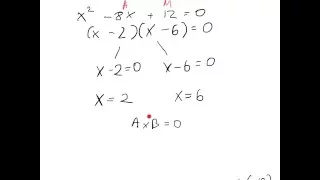 A M
x² - 8x + 12 = 0
(x - 2)(x - 6) = 0
x - 2 = 0 x - 6 = 0
x = 2 x = 6
A x B = 0